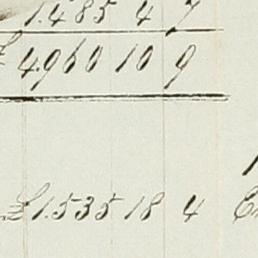 1.485 4 7
£ 4960 10 9
£1.535 18 4